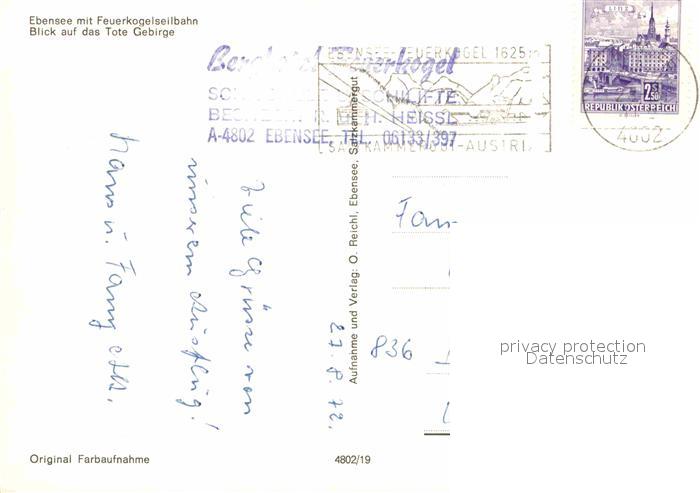 Ebensee mit Feuerkogelseilbahn
Blick auf das Tote Gebirge
Berghotel Feuerkogel
HEISSL
A-4802 EBENSEE, TEL. 06133/397
EBENSEE-FEUERKOGEL 1625m
SALZKAMMERGUT-AUSTRIA
LINZ
2.50
REPUBLIK ÖSTERREICH
4802
27. 8. 72.
Viele Grüsse von
unserem Ausflug!
Hans u.
Aufnahme und Verlag: O. Reichl, Ebensee, Salzkammergut
Fam
836
privacy protection
Datenschutz
Original Farbaufnahme
4802/19